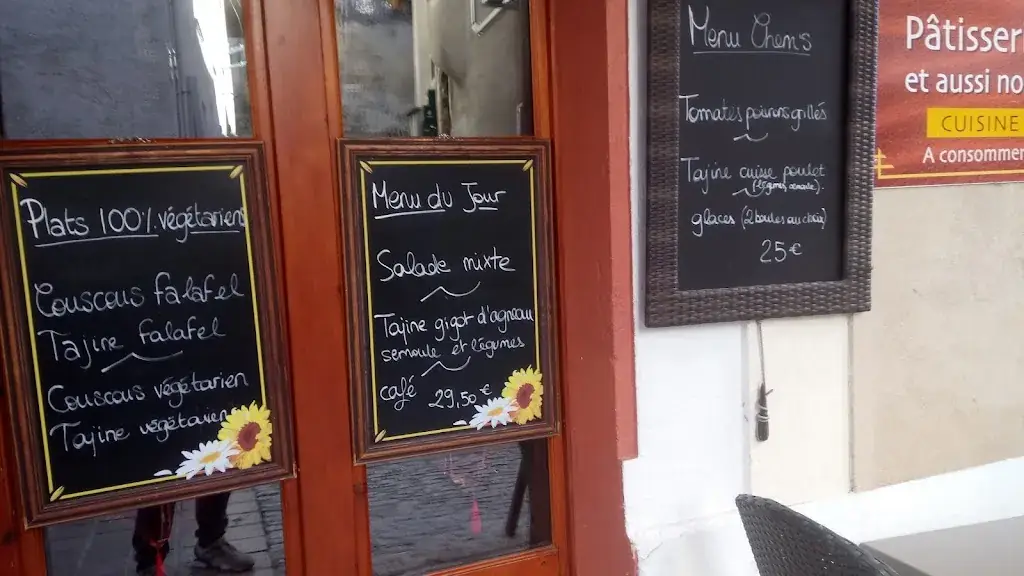 Plats 100% végétarien
Couscous falafel
Tajine falafel
Couscous végétarien
Tajine végétarien
Menu du Jour
Salade mixte
Tajine gigot d'agneau
semoule et légumes
café 29,50 €
Menu Chem's
Tomates poivrons grillés
Tajine cuisse poulet
(légumes, semoule).
glaces (2 boules au choix)
25 €
Pâtisser
et aussi no
CUISINE
A consommer